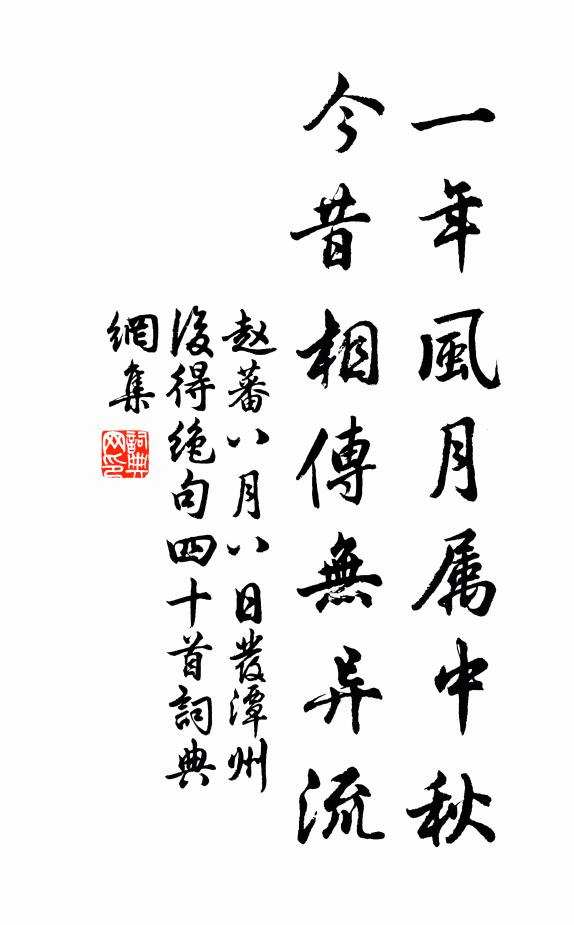 一年風月属中秋
今昔相傳無异流
赵蕃八月八日發潭州
後得绝句四十首詞典
網集
詞典網印